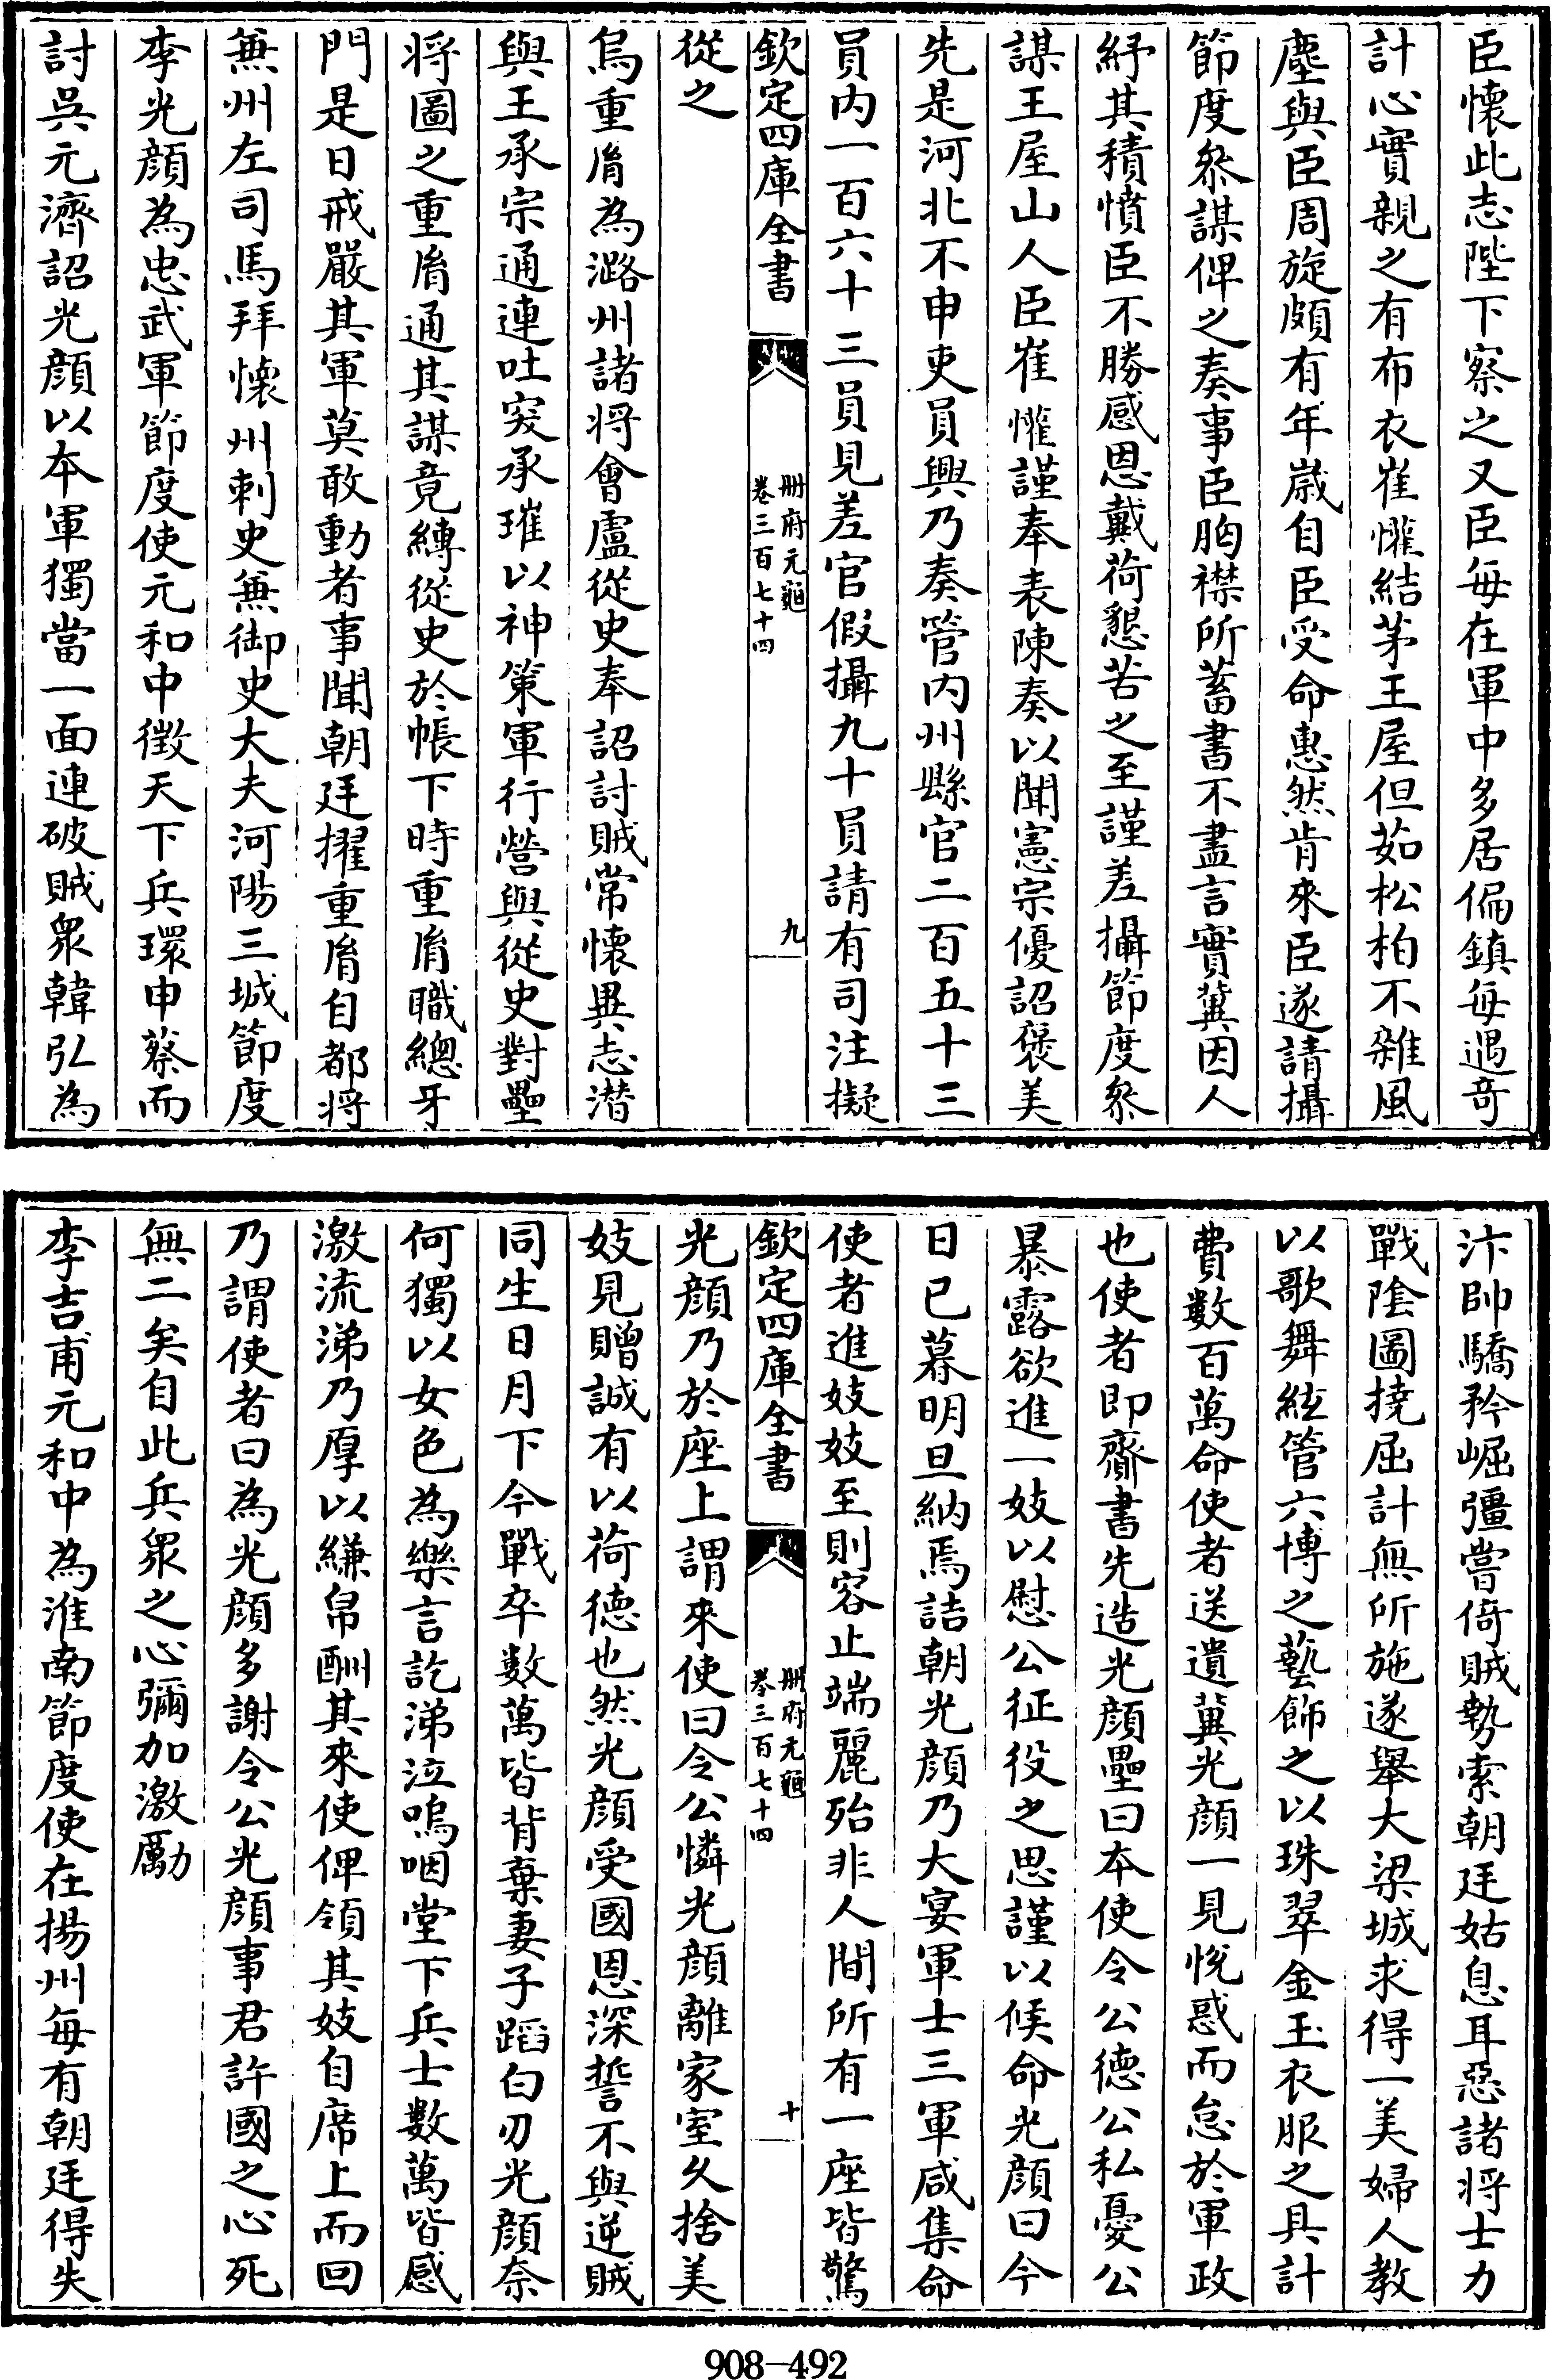 臣懷此志陛下察之又臣每在軍中多居偏鎮每遇竒
計心實親之有布衣崔懽結茅王屋但茹松柏不雜風
塵與臣周旋頗有年歲自臣受命惠然肯來臣遂請攝
節度叅謀俾之奏事臣胸襟所蓄書不盡言實冀因人
紓其積憤臣不勝感恩戴荷懇苦之至謹差攝節度叅
謀王屋山人臣崔懽謹奉表陳奏以聞憲宗優詔褒美
先是河北不申吏員興乃奏管内州縣官二百五十三
員内一百六十三員見差官假攝九十員請有司注擬
欽定四庫全書 冊府元龜 卷三百七十四 九
從之
烏重胤為潞州諸将會盧從史奉詔討賊常懷異志潜
與王承宗通連吐突承璀以神策軍行營與從史對壘
将圖之重胤通其謀竟縳從史於帳下時重胤職總牙
門是日戒嚴其軍莫敢動者事聞朝廷擢重胤自都将
兼州左司馬拜懷州刺史兼御史大夫河陽三城節度
李光顔為忠武軍節度使元和中徴天下兵環申蔡而
討吳元濟詔光顔以本軍獨當一面連破賊衆韓弘為
汴帥驕矜崛彊嘗倚賊勢索朝廷姑息耳惡諸将士力
戰陰圖撓屈計無所施遂舉大梁城求得一美婦人教
以歌舞絃管六博之藝飾之以珠翠金玉衣服之具計
費數百萬命使者送遺冀光顔一見恱惑而怠於軍政
也使者即齎書先造光顔壘曰本使令公德公私憂公
暴露欲進一妓以慰公征役之思謹以候命光顔曰今
日已暮明旦納焉詰朝光顔乃大宴軍士三軍咸集命
使者進妓妓至則容止端麗殆非人間所有一座皆驚
欽定四庫全書 冊府元龜 卷三百七十四 十
光顔乃於座上謂來使曰令公憐光顔離家室久捨美
妓見贈誠有以荷德也然光顔受國恩深誓不與逆賊
同生日月下今戰卒數萬皆背棄妻子蹈白刃光顔奈
何獨以女色為樂言訖涕泣嗚咽堂下兵士數萬皆感
激流涕乃厚以縑帛酬其來使俾領其妓自席上而回
乃謂使者曰為光顔多謝令公光顔事君許國之心死
無二矣自此兵衆之心彌加激勵
李吉甫元和中為淮南節度使在揚州每有朝廷得失
908-492